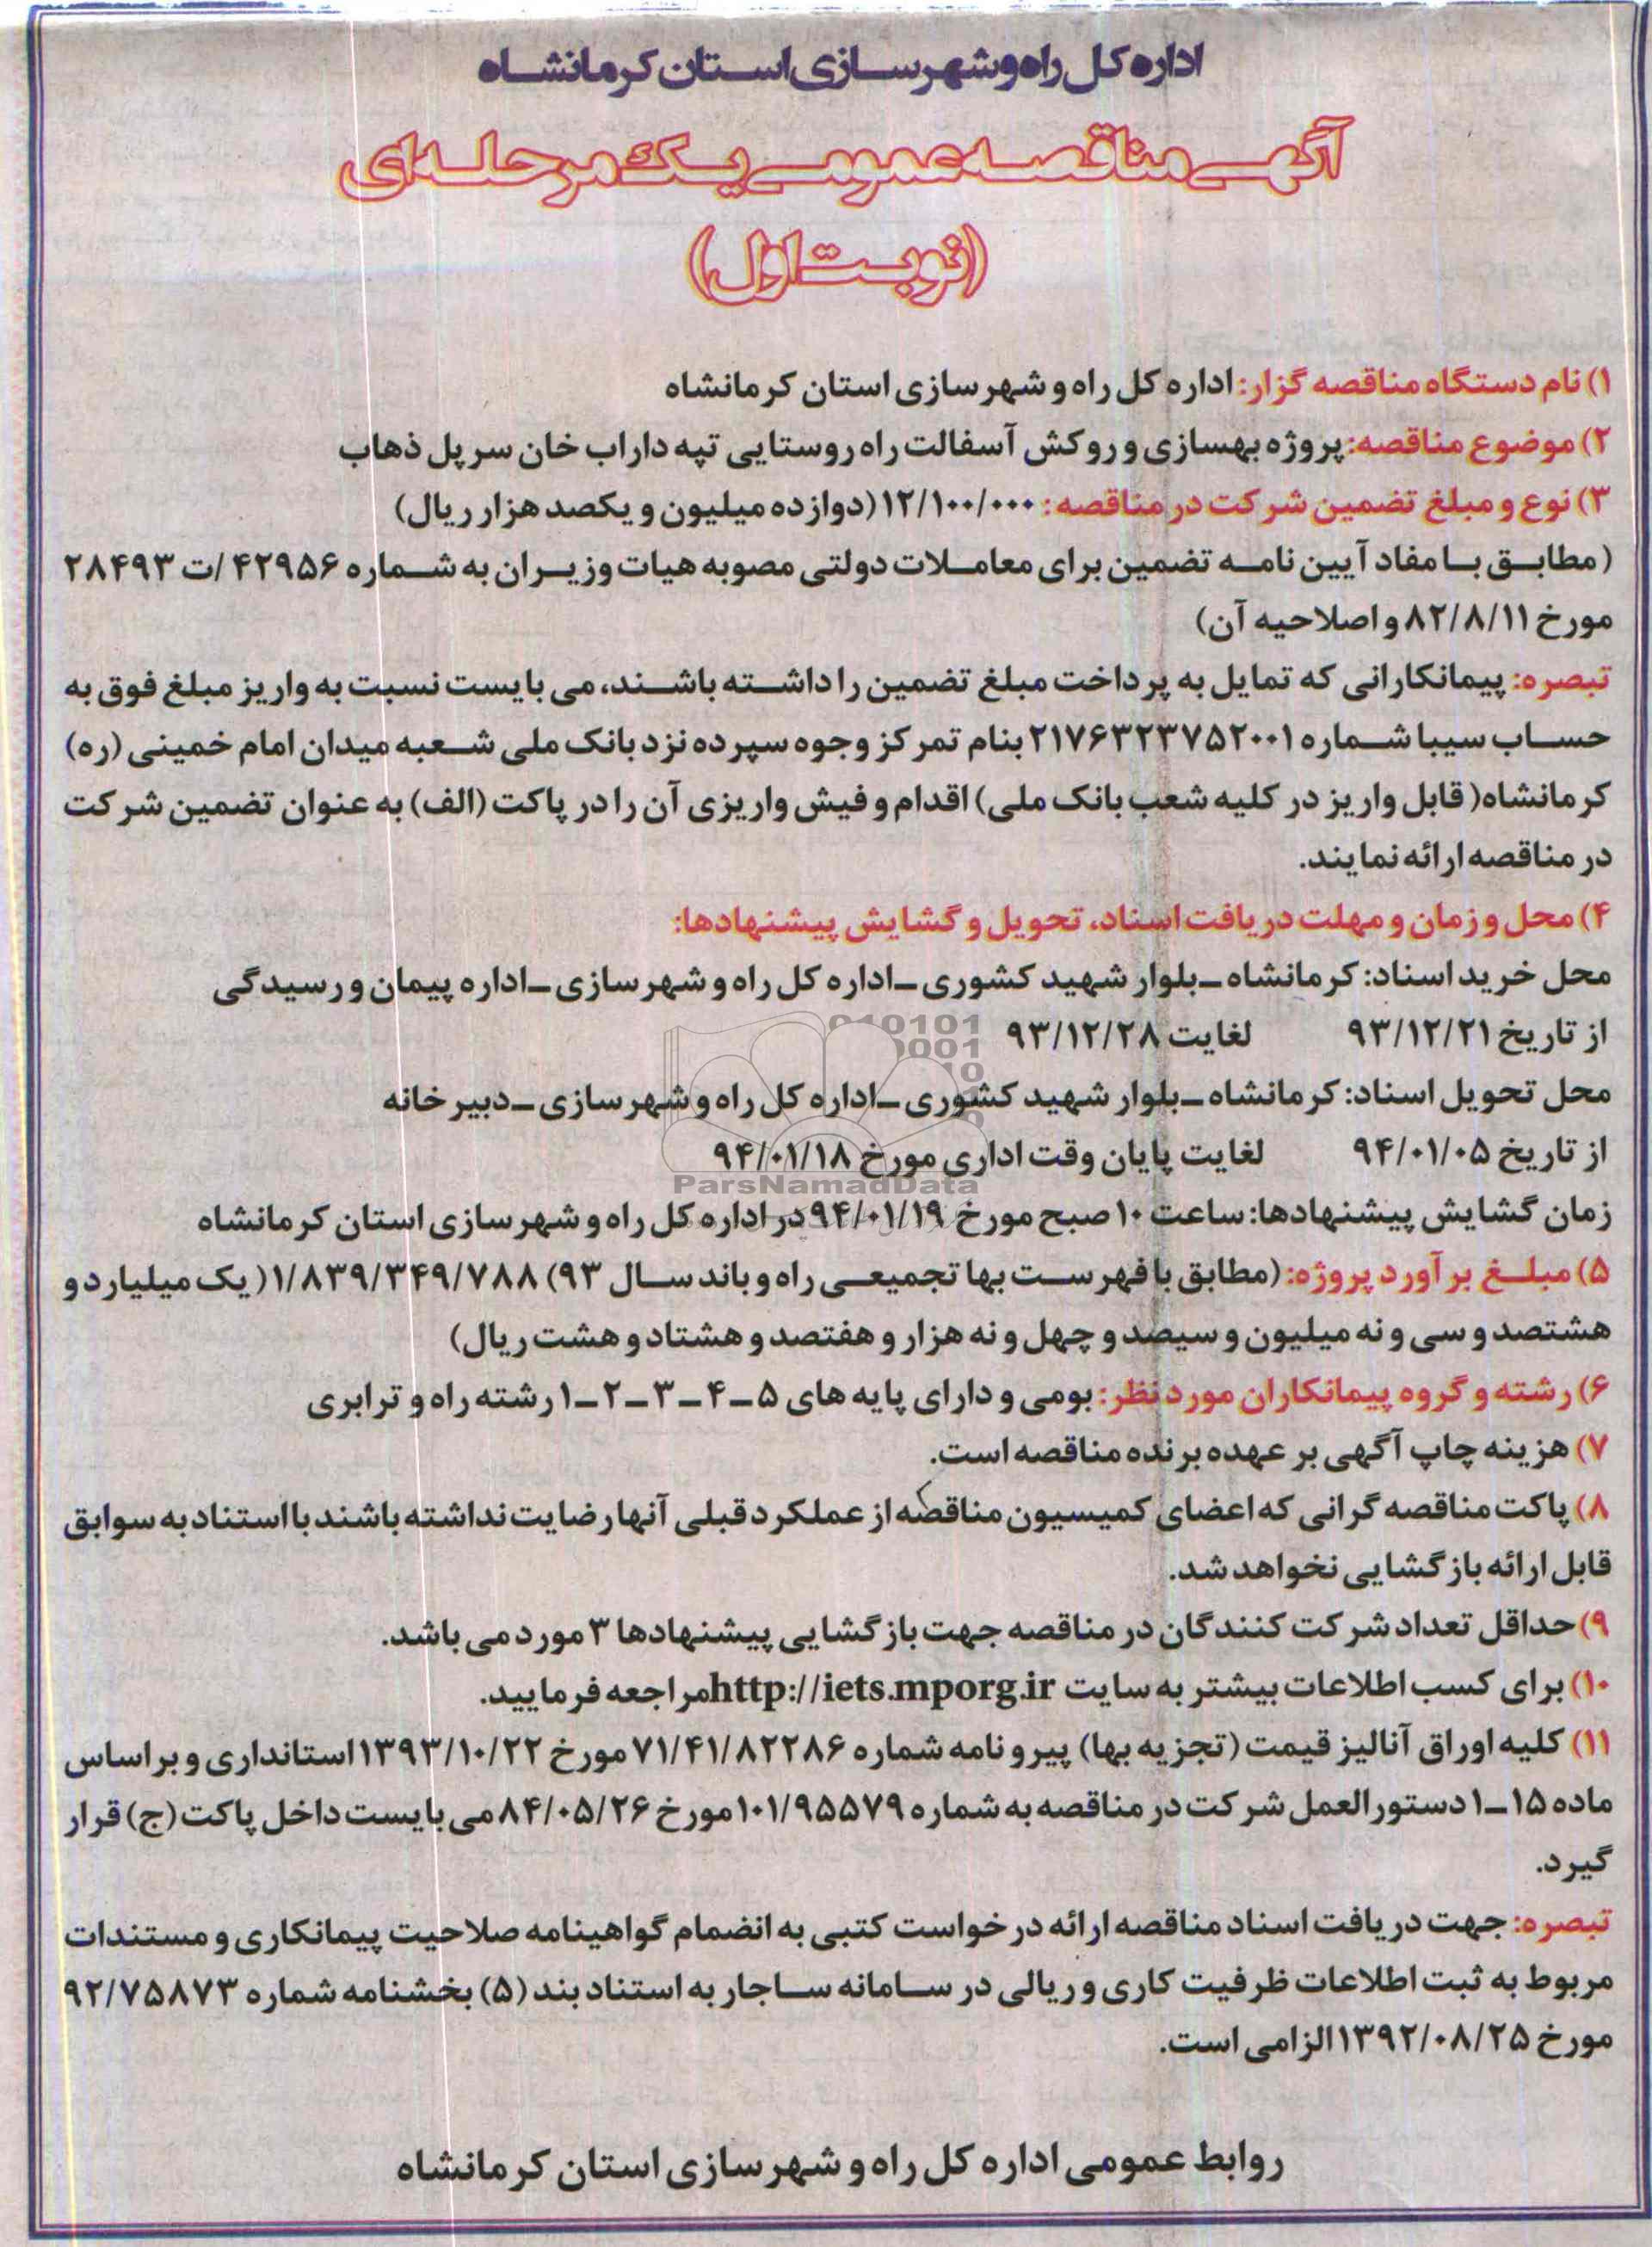 اداره کل راه و شهرسازی استان کرمانشاه
آگهی مناقصه عمومی یک مرحله‌ای
(نوبت اول)
۱) نام دستگاه مناقصه گزار: اداره کل راه و شهرسازی استان کرمانشاه
۲) موضوع مناقصه: پروژه بهسازی و روکش آسفالت راه روستایی تپه داراب خان سرپل ذهاب
۳) نوع و مبلغ تضمین شرکت در مناقصه: ۱۲/۱۰۰/۰۰۰ (دوازده میلیون و یکصد هزار ریال)
(مطابق با مفاد آیین نامه تضمین برای معاملات دولتی مصوبه هیات وزیران به شماره ۴۲۹۵۶ /ت ۲۸۴۹۳
مورخ ۸۲/۸/۱۱ و اصلاحیه آن)
تبصره: پیمانکارانی که تمایل به پرداخت مبلغ تضمین را داشته باشند، می بایست نسبت به واریز مبلغ فوق به
حساب سیبا شماره ۲۱۷۶۳۲۳۷۵۲۰۰۱ بنام تمرکز وجوه سپرده نزد بانک ملی شعبه میدان امام خمینی (ره)
کرمانشاه( قابل واریز در کلیه شعب بانک ملی) اقدام و فیش واریزی آن را در پاکت (الف) به عنوان تضمین شرکت
در مناقصه ارائه نمایند.
۴) محل و زمان و مهلت دریافت اسناد، تحویل و گشایش پیشنهادها:
محل خرید اسناد: کرمانشاه ـ بلوار شهید کشوری ـ اداره کل راه و شهرسازی ـ اداره پیمان و رسیدگی
از تاریخ ۹۳/۱۲/۲۱ لغایت ۹۳/۱۲/۲۸
محل تحویل اسناد: کرمانشاه ـ بلوار شهید کشوری ـ اداره کل راه و شهرسازی ـ دبیرخانه
از تاریخ ۹۴/۰۱/۰۵ لغایت پایان وقت اداری مورخ ۹۴/۰۱/۱۸
ParsNamadData
زمان گشایش پیشنهادها: ساعت ۱۰ صبح مورخ ۹۴/۰۱/۱۹ در اداره کل راه و شهرسازی استان کرمانشاه
۵) مبلغ برآورد پروژه: (مطابق با فهرست بها تجمیعی راه و باند سال ۹۳) ۱/۸۳۹/۳۴۹/۷۸۸ ( یک میلیارد و
هشتصد و سی و نه میلیون و سیصد و چهل و نه هزار و هفتصد و هشتاد و هشت ریال)
۶) رشته و گروه پیمانکاران مورد نظر: بومی و دارای پایه های ۵ ـ ۴ ـ ۳ ـ ۲ ـ ۱ رشته راه و ترابری
۷) هزینه چاپ آگهی بر عهده برنده مناقصه است.
۸) پاکت مناقصه گرانی که اعضای کمیسیون مناقصه از عملکرد قبلی آنها رضایت نداشته باشند با استناد به سوابق
قابل ارائه بازگشایی نخواهد شد.
۹) حداقل تعداد شرکت کنندگان در مناقصه جهت بازگشایی پیشنهادها ۳ مورد می باشد.
۱۰) برای کسب اطلاعات بیشتر به سایت http://iets.mporg.ir مراجعه فرمایید.
۱۱) کلیه اوراق آنالیز قیمت (تجزیه بها) پیرو نامه شماره ۷۱/۴۱/۸۲۲۸۶ مورخ ۱۳۹۳/۱۰/۲۲ استانداری و براساس
ماده ۱۵ـ۱ دستورالعمل شرکت در مناقصه به شماره ۱۰۱/۹۵۵۷۹ مورخ ۸۴/۰۵/۲۶ می بایست داخل پاکت (ج) قرار
گیرد.
تبصره: جهت دریافت اسناد مناقصه ارائه درخواست کتبی به انضمام گواهینامه صلاحیت پیمانکاری و مستندات
مربوط به ثبت اطلاعات ظرفیت کاری و ریالی در سامانه ساجار به استناد بند (۵) بخشنامه شماره ۹۲/۷۵۸۷۳
مورخ ۱۳۹۲/۰۸/۲۵ الزامی است.
روابط عمومی اداره کل راه و شهرسازی استان کرمانشاه